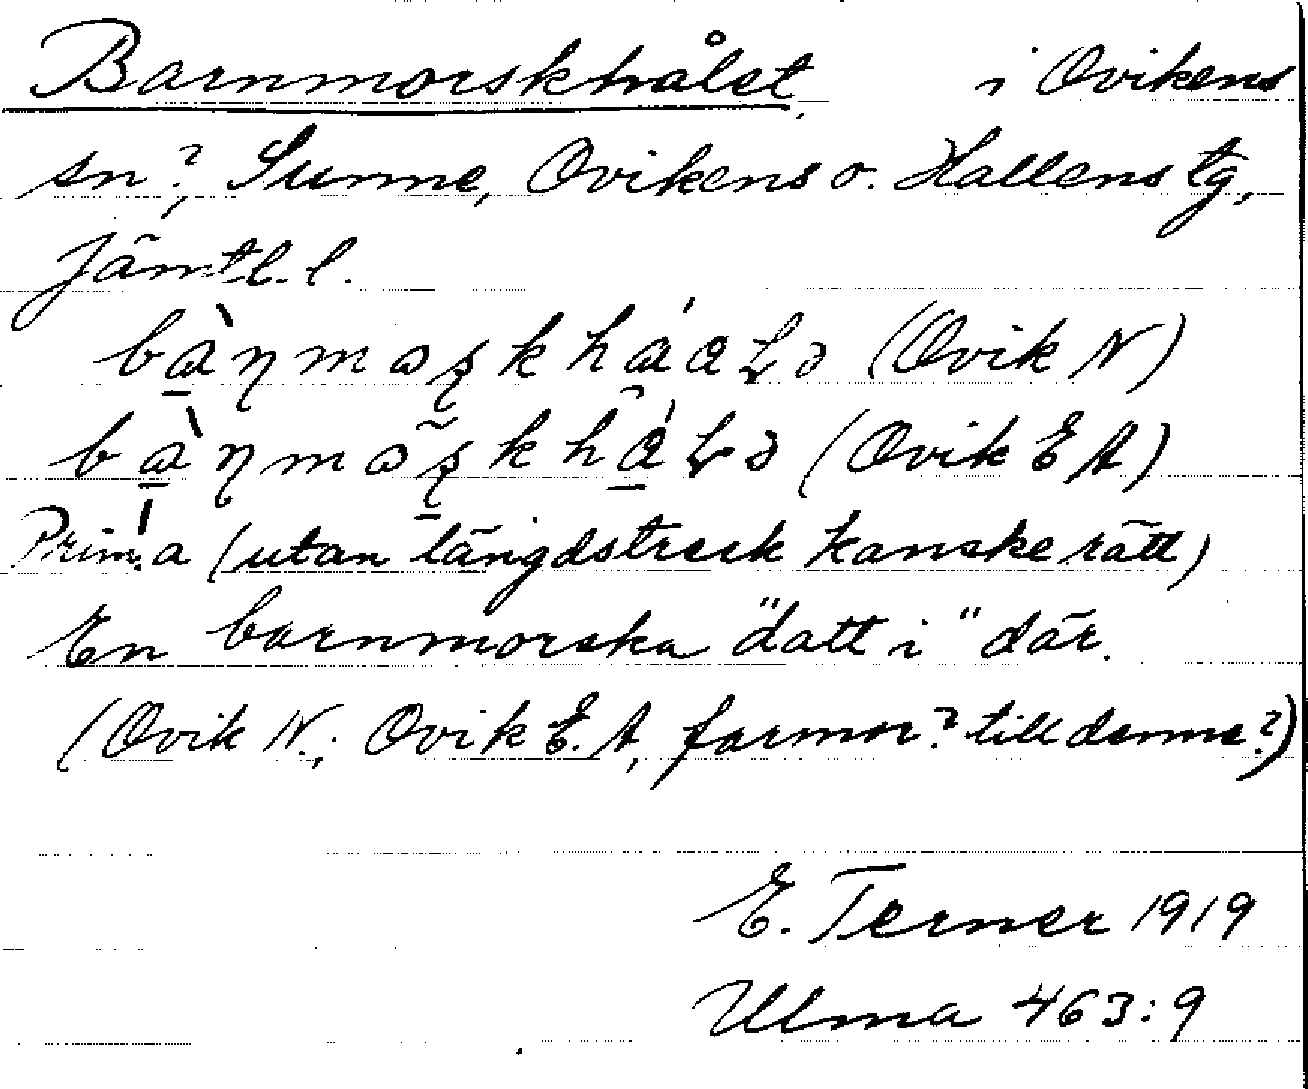 Barnmorskhålet i Ovikens
sn?, Sunne, Ovikens o. Hallens tg,
Jämtl. l.
(Ovik N)
(Ovik E A)
Prim. a (utan längdstreck kanske rätt)
En barnmorska "datt i" där.
(Ovik N.; Ovik E. A, farmor? till denne?)
E. Terner 1919
Ulma 463:9